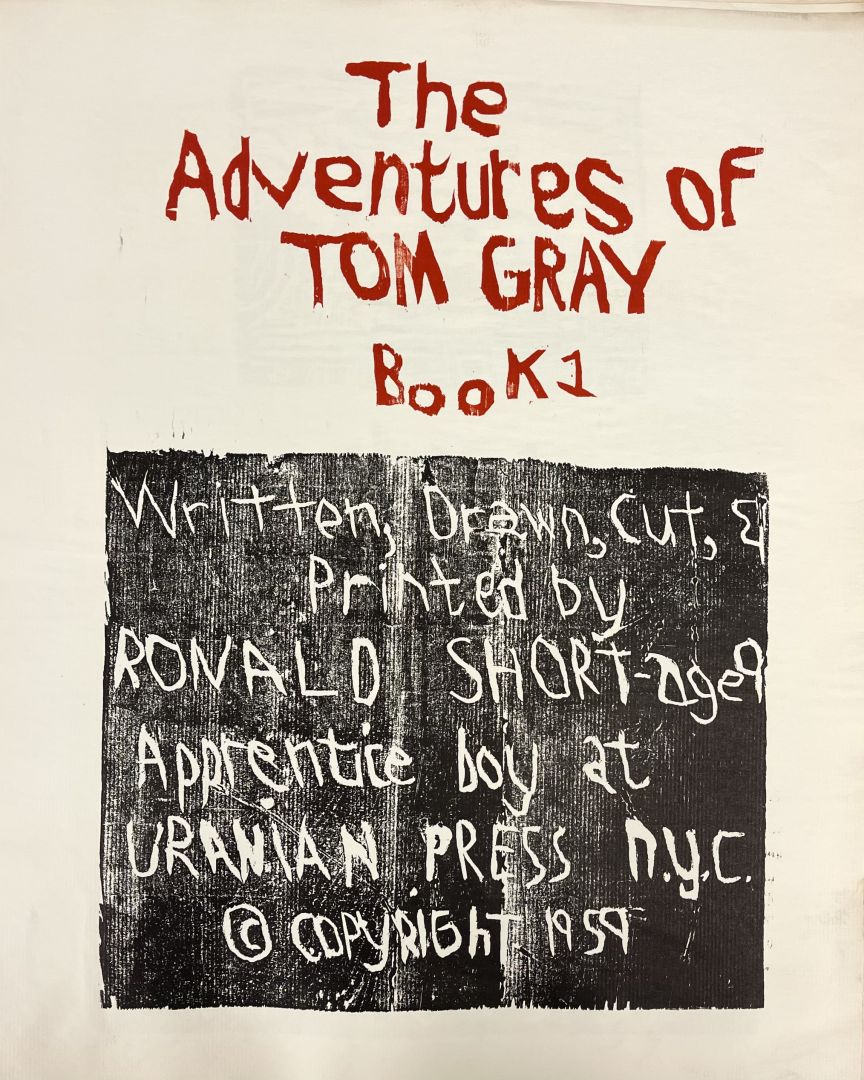 The
Adventures of
TOM GRAY
Book 1
Written, Drawn, Cut, &
Printed by
RONALD SHORT-age 9
Apprentice boy at
URANIAN PRESS n.y.c.
© COPYRIGhT 1959